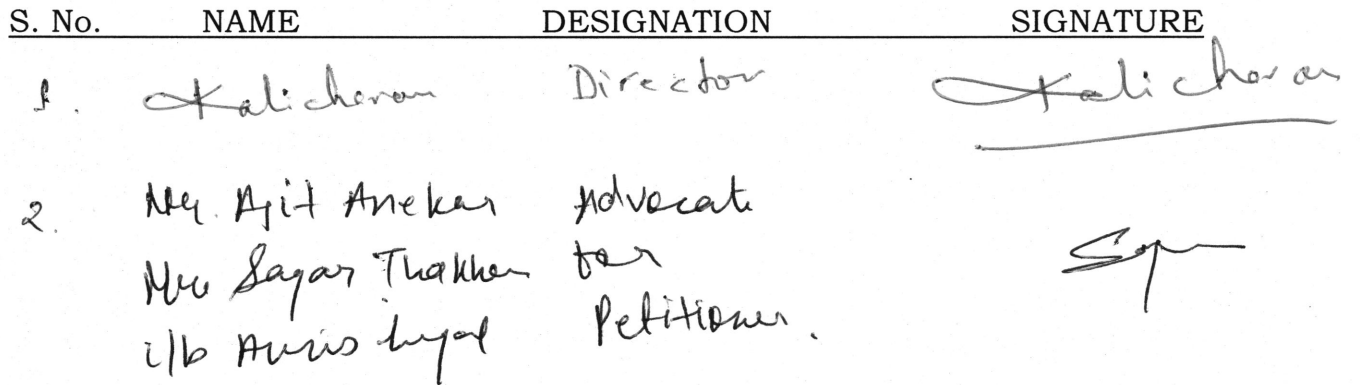 S. No. NAME DESIGNATION SIGNATURE
1. Kalicharan Director Kalicharan
2. Mr. Ajit Anekar Advocate
Mr. Sagar Thakkar for
i/b Auris Legal Petitioner.